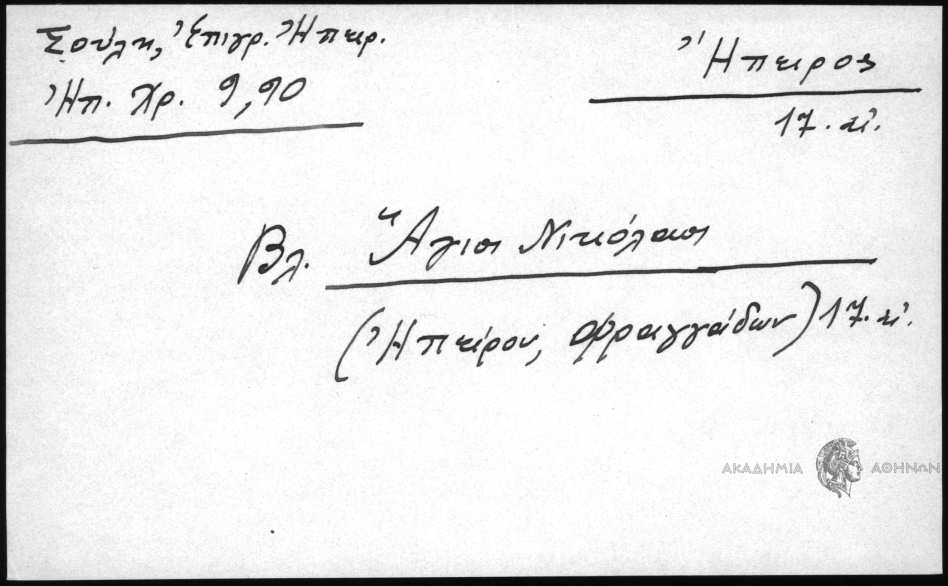 Σούλη, Ἐπιγρ. Ἠπειρ.
Ἠπ. Χρ. 9,90
Ἤπειρος
17. αἰ.
Βλ. Ἅγιος Νικόλαος
(Ἠπείρου, Φραγγάδων) 17. αἰ.
ΑΚΑΔΗΜΙΑ ΑΘΗΝΩΝ